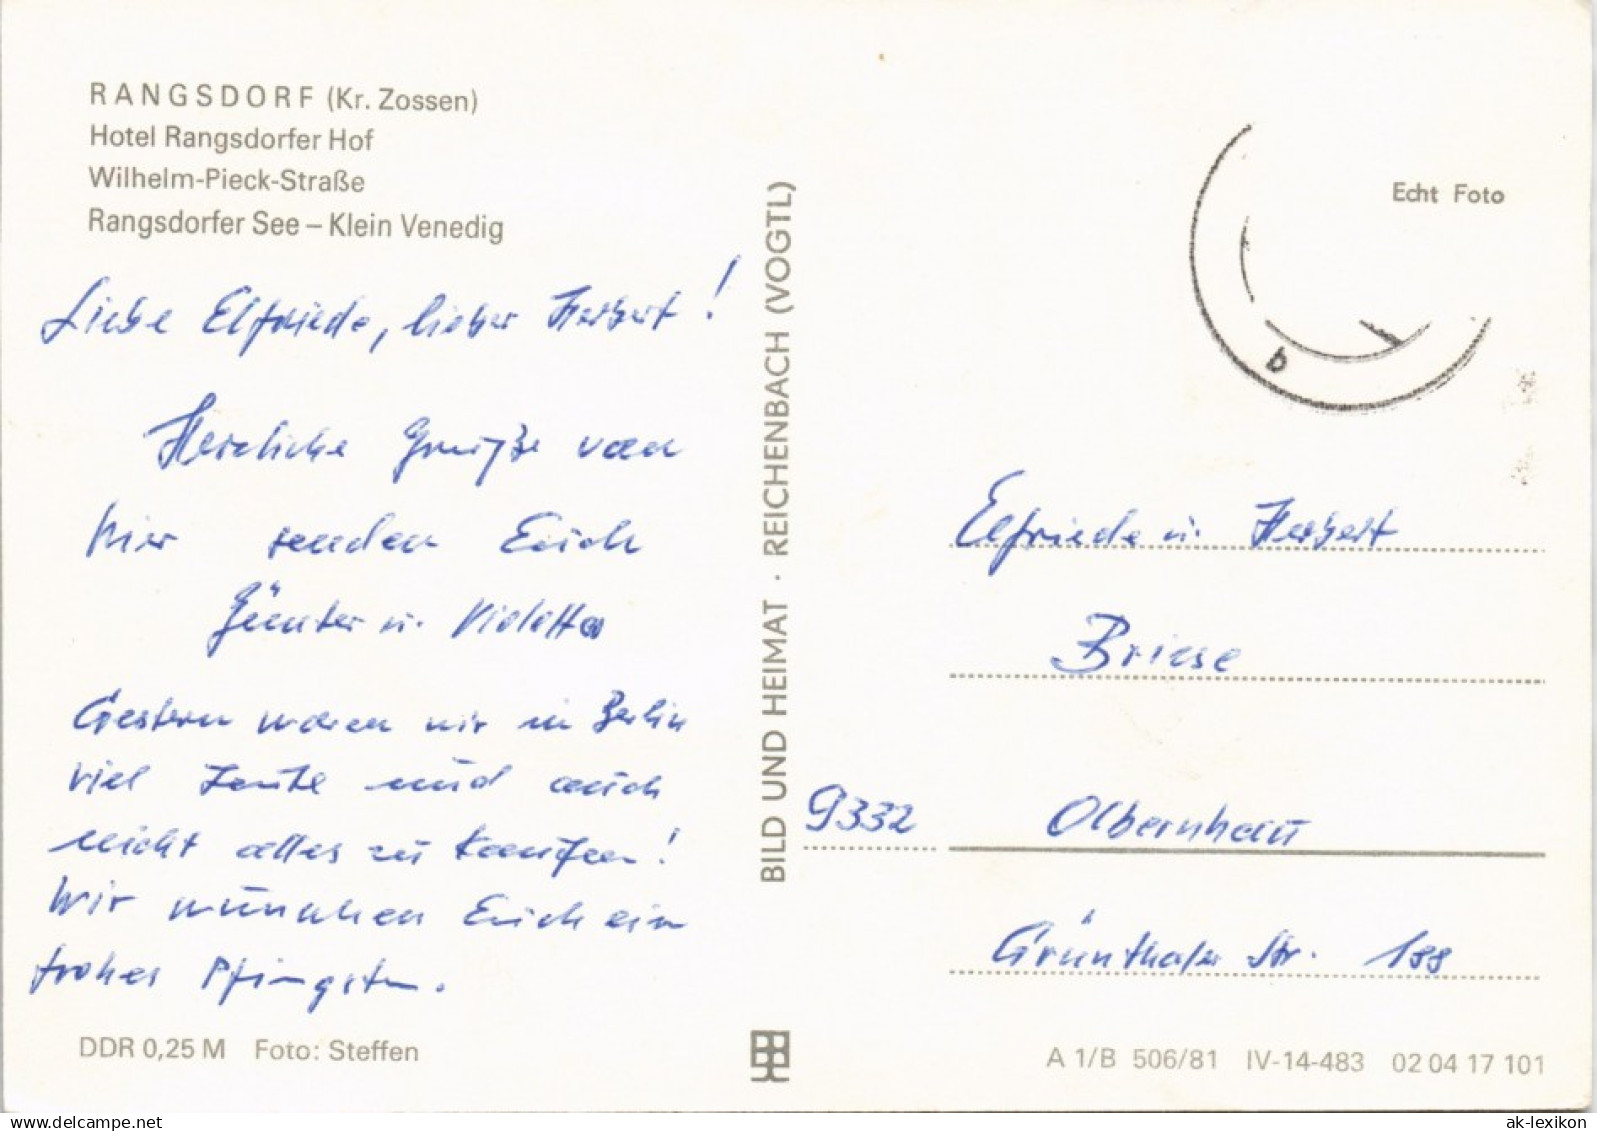 RANGSDORF (Kr. Zossen)
Hotel Rangsdorfer Hof
Wilhelm-Pieck-Straße
Rangsdorfer See – Klein Venedig
Liebe Elfriede, lieber Herbert!
Herzliche Grüße von
hier senden Euch
Günter u. Violetta
Gestern waren wir in Berlin
viel Leute und auch
nicht alles zu kaufen!
Wir wünschen Euch ein
frohes Pfingsten.
DDR 0,25 M Foto: Steffen
BILD UND HEIMAT · REICHENBACH (VOGTL)
Echt Foto
b
Elfriede u. Herbert
Briese
9332 Olbernhau
Grünthaler Str. 188
A 1/B 506/81 IV-14-483 02 04 17 101
www.delcampe.net
ak-lexikon